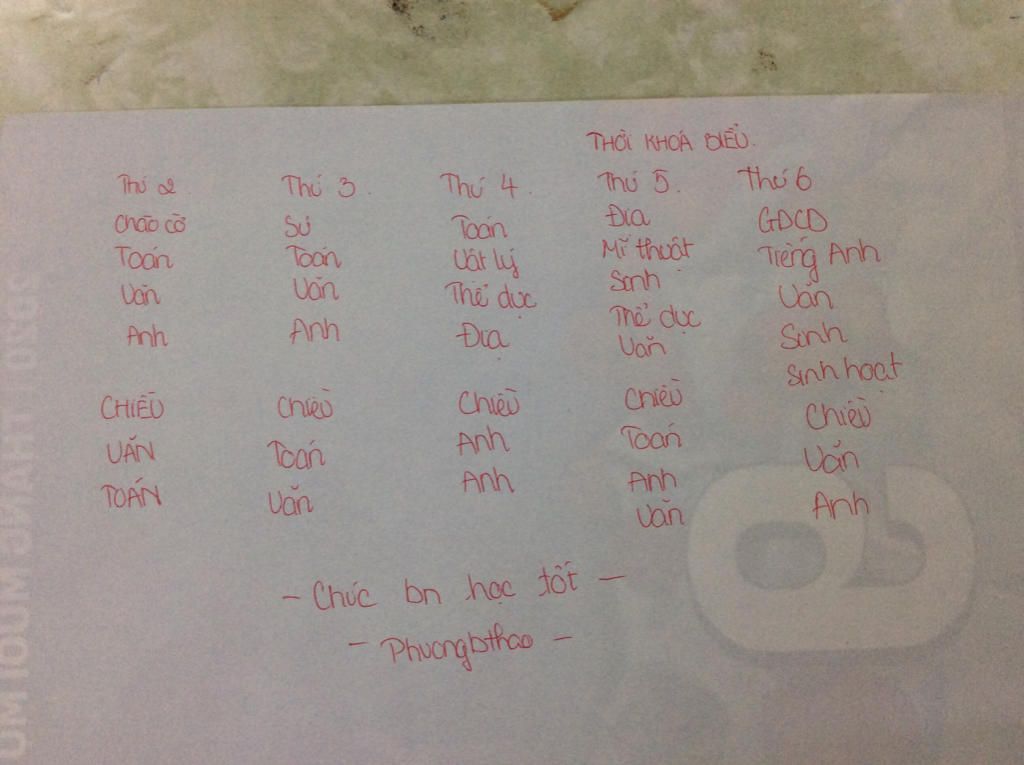 THỜI KHOÁ BIỂU.
Thứ 2. Thứ 3. Thứ 4. Thứ 5. Thứ 6
Chào cờ Sử Toán Địa GDCD
Toán Toán Vật lý Mĩ thuật Tiếng Anh
Văn Văn Thể dục Sinh Văn
Anh Anh Địa Thể dục Sinh
Văn Sinh hoạt
CHIỀU Chiều Chiều Chiều Chiều
VĂN Toán Anh Toán Văn
TOÁN Văn Anh Anh Anh
Văn
- Chúc bn học tốt -
- Phuongbthao -
2020 THÁNG MƯỜI MỘ